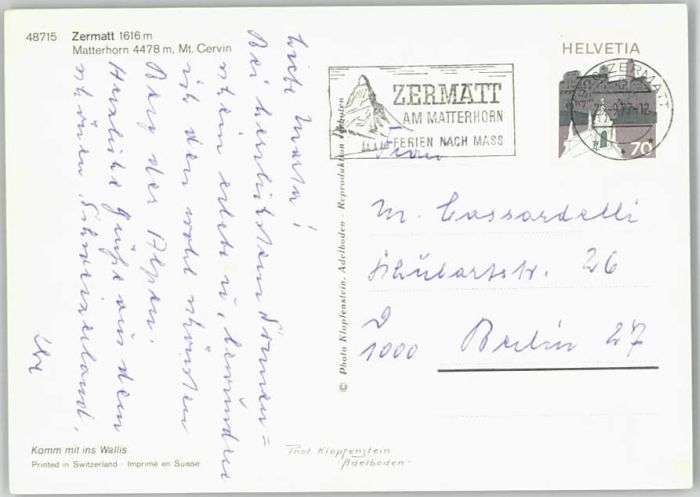 48715 Zermatt 1616 m
Matterhorn 4478 m, Mt. Cervin
Liebe Marta!
Bei herrlichstem Sonnen=
schein erlebe u. bewundre
ich den wohl schönsten
Berg der Alpen.
Herzliche Grüße aus dem
schönen Schweizerland.
Komm mit ins Wallis
Printed in Switzerland - Imprimé en Suisse
© Photo Klopfenstein, Adelboden - Reproduktion verboten
Phot Klopfenstein
Adelboden
ZERMATT
AM MATTERHORN
FERIEN NACH MASS
HELVETIA
ZERMATT
70
Frau
M. Cassardelli
Schubartstr. 26
D
1000 Berlin 27